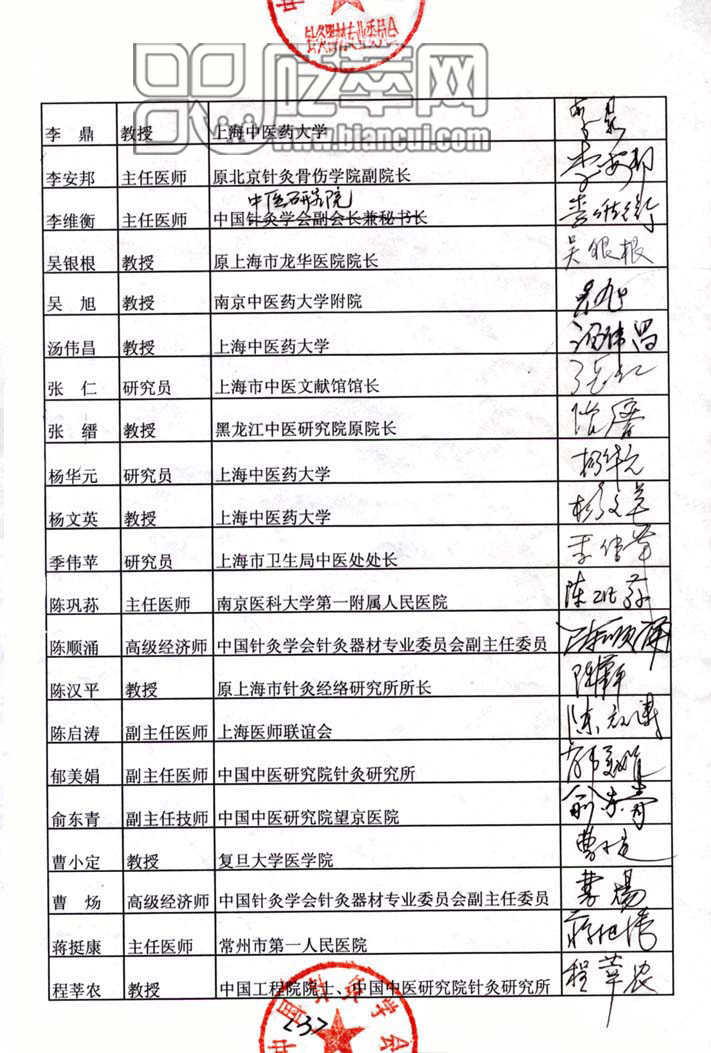 针灸器材专业委员会
砭萃网
www.biancui.com
李 鼎 教授 上海中医药大学 李鼎
李安邦 主任医师 原北京针灸骨伤学院副院长 李安邦
中医研究院
李维衡 主任医师 中国针灸学会副会长兼秘书长 李维衡
吴银根 教授 原上海市龙华医院院长 吴银根
吴 旭 教授 南京中医药大学附院 吴旭
汤伟昌 教授 上海中医药大学 汤伟昌
张 仁 研究员 上海市中医文献馆馆长 张仁
张 缙 教授 黑龙江中医研究院原院长
杨华元 研究员 上海中医药大学 杨华元
杨文英 教授 上海中医药大学 杨文英
季伟苹 研究员 上海市卫生局中医处处长 季伟苹
陈巩荪 主任医师 南京医科大学第一附属人民医院 陈巩荪
陈顺涌 高级经济师 中国针灸学会针灸器材专业委员会副主任委员 陈顺涌
陈汉平 教授 原上海市针灸经络研究所所长 陈汉平
陈启涛 副主任医师 上海医师联谊会 陈启涛
郁美娟 副主任医师 中国中医研究院针灸研究所 郁美娟
俞东青 副主任技师 中国中医研究院望京医院 俞东青
曹小定 教授 复旦大学医学院 曹小定
曹 炀 高级经济师 中国针灸学会针灸器材专业委员会副主任委员 曹炀
蒋挺康 主任医师 常州市第一人民医院
程莘农 教授 中国工程院院士、中国中医研究院针灸研究所 程莘农
中国针灸学会
<3>